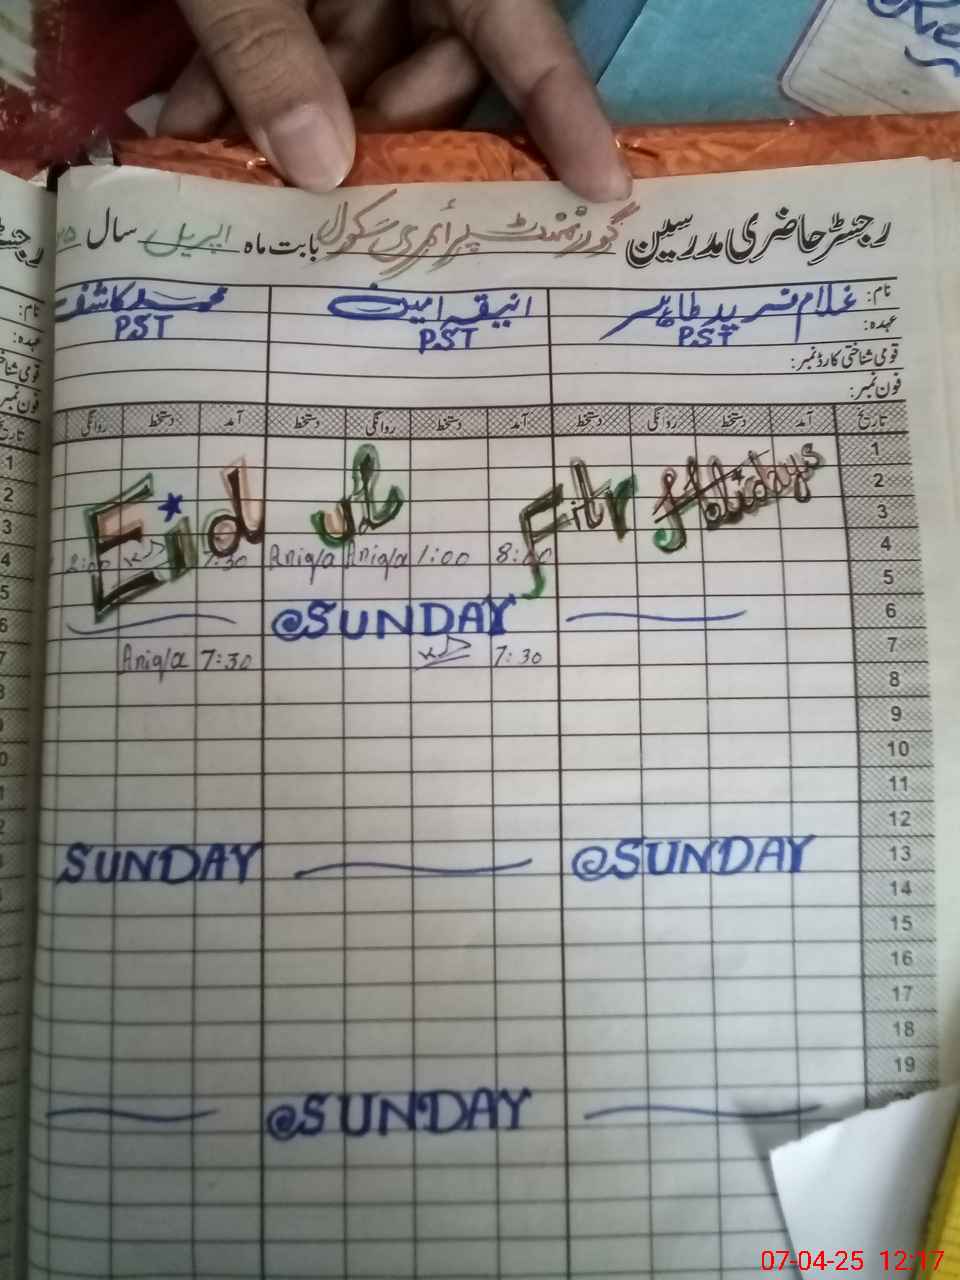 رجسٹر حاضری مدرسین گورنمنٹ پرائمری سکول بابت ماہ اپریل سال ۲۵
نام: غلام فرید طاہر انیقہ امین محمد کاشف
عہدہ: PST PST PST
قومی شناختی کارڈ نمبر:
فون نمبر:
تاریخ آمد دستخط روانگی دستخط آمد دستخط روانگی دستخط آمد دستخط روانگی
1
2
Eid ul Fitr Holidays
3
2:00 7:30 Aniq/a Aniq/a 1:00 8:00 4
5
@SUNDAY 6
Aniq/a 7:30 7:30 7
8
9
10
11
12
SUNDAY @SUNDAY 13
14
15
16
17
18
19
@SUNDAY
07-04-25 12:17